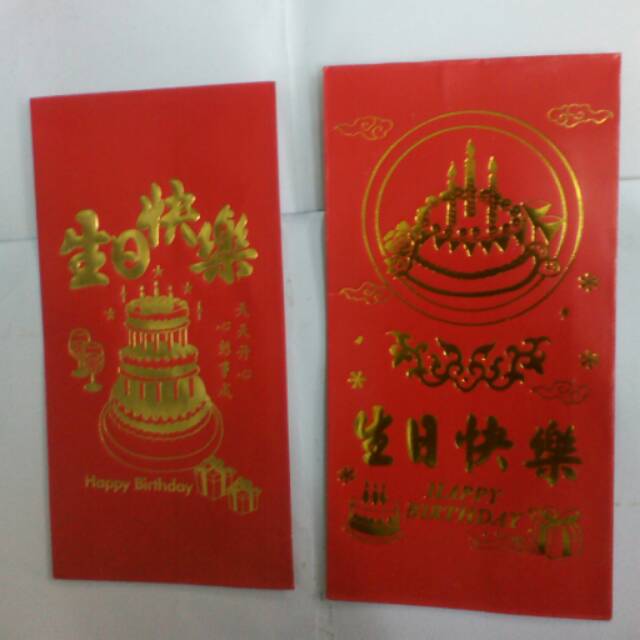 生日快樂
天天開心
心想事成
Happy Birthday
生日快樂
HAPPY
BIRTHDAY